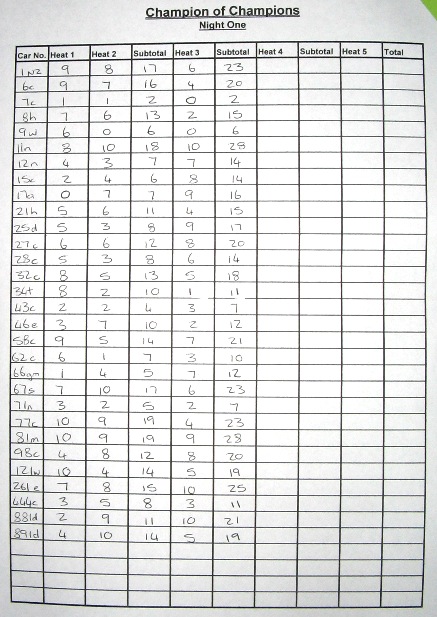 Champion of Champions
Night One
Car No. Heat 1 Heat 2 Subtotal Heat 3 Subtotal Heat 4 Subtotal Heat 5 Total
1NZ 9 8 17 6 23
6c 9 7 16 4 20
7c 1 1 2 0 2
8h 7 6 13 2 15
9w 6 0 6 0 6
11n 8 10 18 10 28
12n 4 3 7 7 14
15c 2 4 6 8 14
17a 0 7 7 9 16
21h 5 6 11 4 15
25d 5 3 8 9 17
27c 6 6 12 8 20
28c 5 3 8 6 14
32c 8 5 13 5 18
34t 8 2 10 1 11
43c 2 2 4 3 7
46e 3 7 10 2 12
58c 9 5 14 7 21
62c 6 1 7 3 10
66gm 1 4 5 7 12
67s 7 10 17 6 23
71n 3 2 5 2 7
77c 10 9 19 4 23
81m 10 9 19 9 28
98c 4 8 12 8 20
121w 10 4 14 5 19
261e 7 8 15 10 25
444c 3 5 8 3 11
881d 2 9 11 10 21
891d 4 10 14 5 19